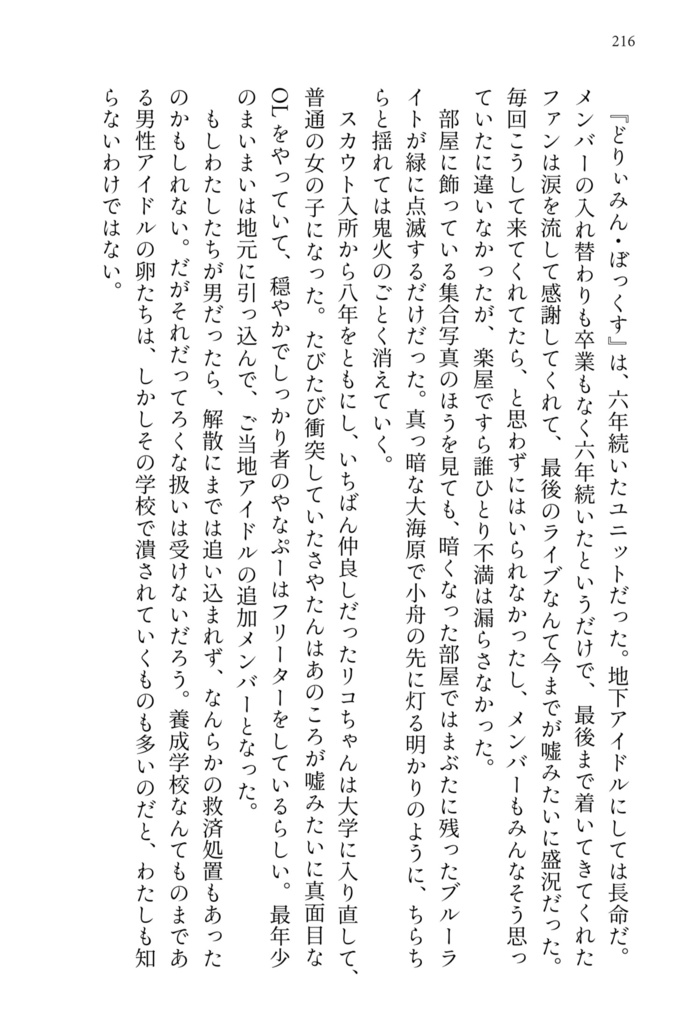 216
『どりぃみん・ぼっくす』は、六年続いたユニットだった。地下アイドルにしては長命だ。
メンバーの入れ替わりも卒業もなく六年続いたというだけで、最後まで着いてきてくれた
ファンは涙を流して感謝してくれて、最後のライブなんて今までが嘘みたいに盛況だった。
毎回こうして来てくれてたら、と思わずにはいられなかったし、メンバーもみんなそう思っ
ていたに違いなかったが、楽屋ですら誰ひとり不満は漏らさなかった。
部屋に飾っている集合写真のほうを見ても、暗くなった部屋ではまぶたに残ったブルーラ
イトが緑に点滅するだけだった。真っ暗な大海原で小舟の先に灯る明かりのように、ちらち
らと揺れては鬼火のごとく消えていく。
スカウト入所から八年をともにし、いちばん仲良しだったリコちゃんは大学に入り直して、
普通の女の子になった。たびたび衝突していたさやたんはあのころが嘘みたいに真面目な
OLをやっていて、穏やかでしっかり者のやなぷーはフリーターをしているらしい。最年少
のまいまいは地元に引っ込んで、ご当地アイドルの追加メンバーとなった。
もしわたしたちが男だったら、解散にまでは追い込まれず、なんらかの救済処置もあった
のかもしれない。だがそれだってろくな扱いは受けないだろう。養成学校なんてものまであ
る男性アイドルの卵たちは、しかしその学校で潰されていくものも多いのだと、わたしも知
らないわけではない。